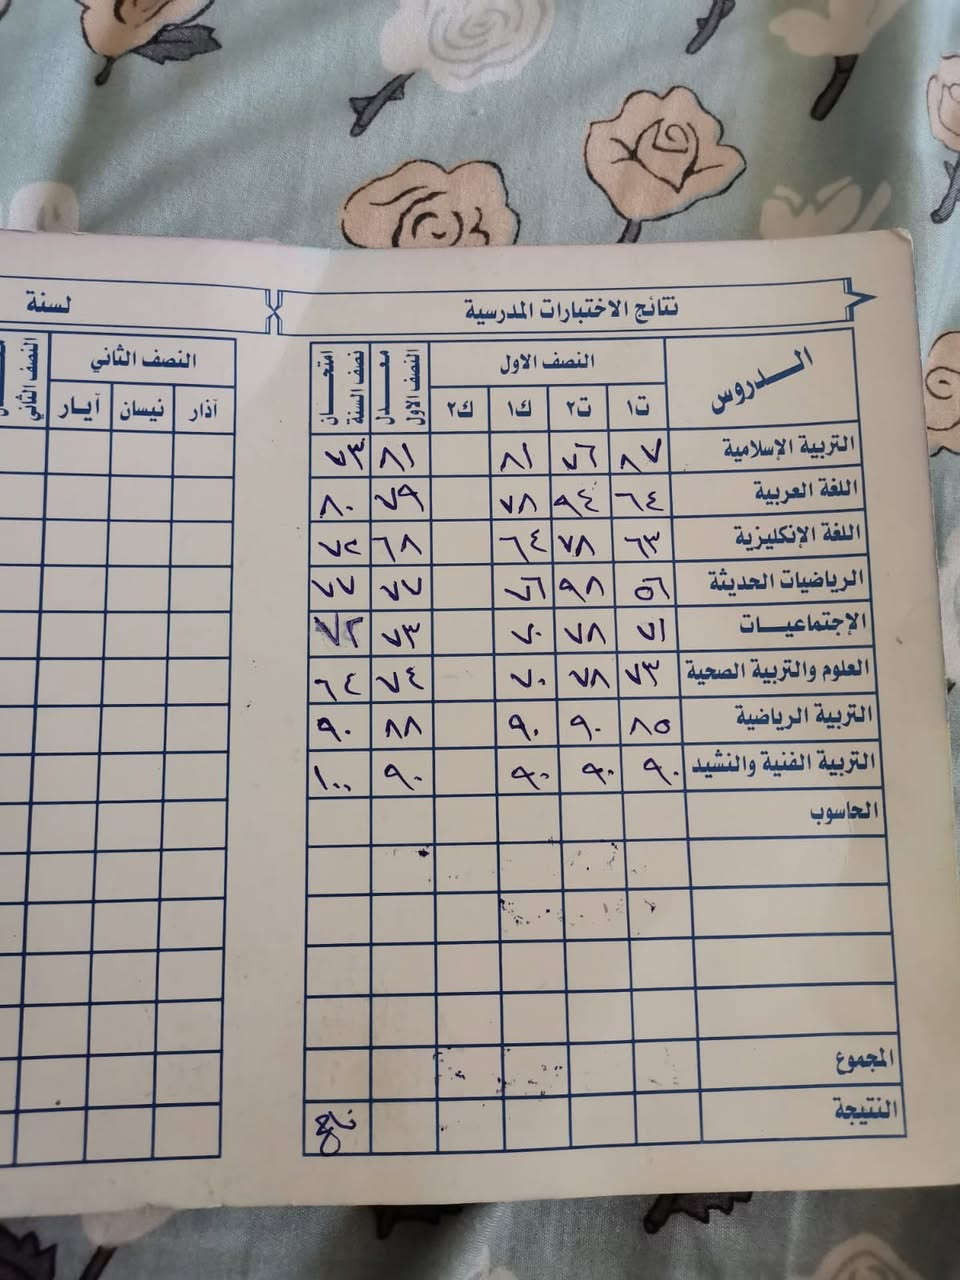 نتائج الاختبارات المدرسية
لسنة
الـدروس
النصف الاول
معـدل النصف الاول
امتحـان نصف السنة
ت١ ت٢ ك١ ك٢
النصف الثاني
آذار نيسان آيـار
النصف الثاني
التربية الإسلامية ٨٧ ٧٦ ٨١ ٨١ ٧٣
اللغة العربية ٦٤ ٩٤ ٧٨ ٧٩ ٨٠
اللغة الإنكليزية ٦٣ ٧٨ ٦٤ ٦٨ ٧٢
الرياضيات الحديثة ٥٦ ٩٨ ٧٦ ٧٧ ٧٧
الإجتماعيـــات ٧١ ٧٨ ٧٠ ٧٣ ٧٢
العلوم والتربية الصحية ٧٣ ٧٨ ٧٠ ٧٤ ٦٤
التربية الرياضية ٨٥ ٩٠ ٩٠ ٨٨ ٩٠
التربية الفنية والنشيد ٩٠ ٩٠ ٩٠ ٩٠ ١٠٠
الحاسوب
المجموع
النتيجة ناجح